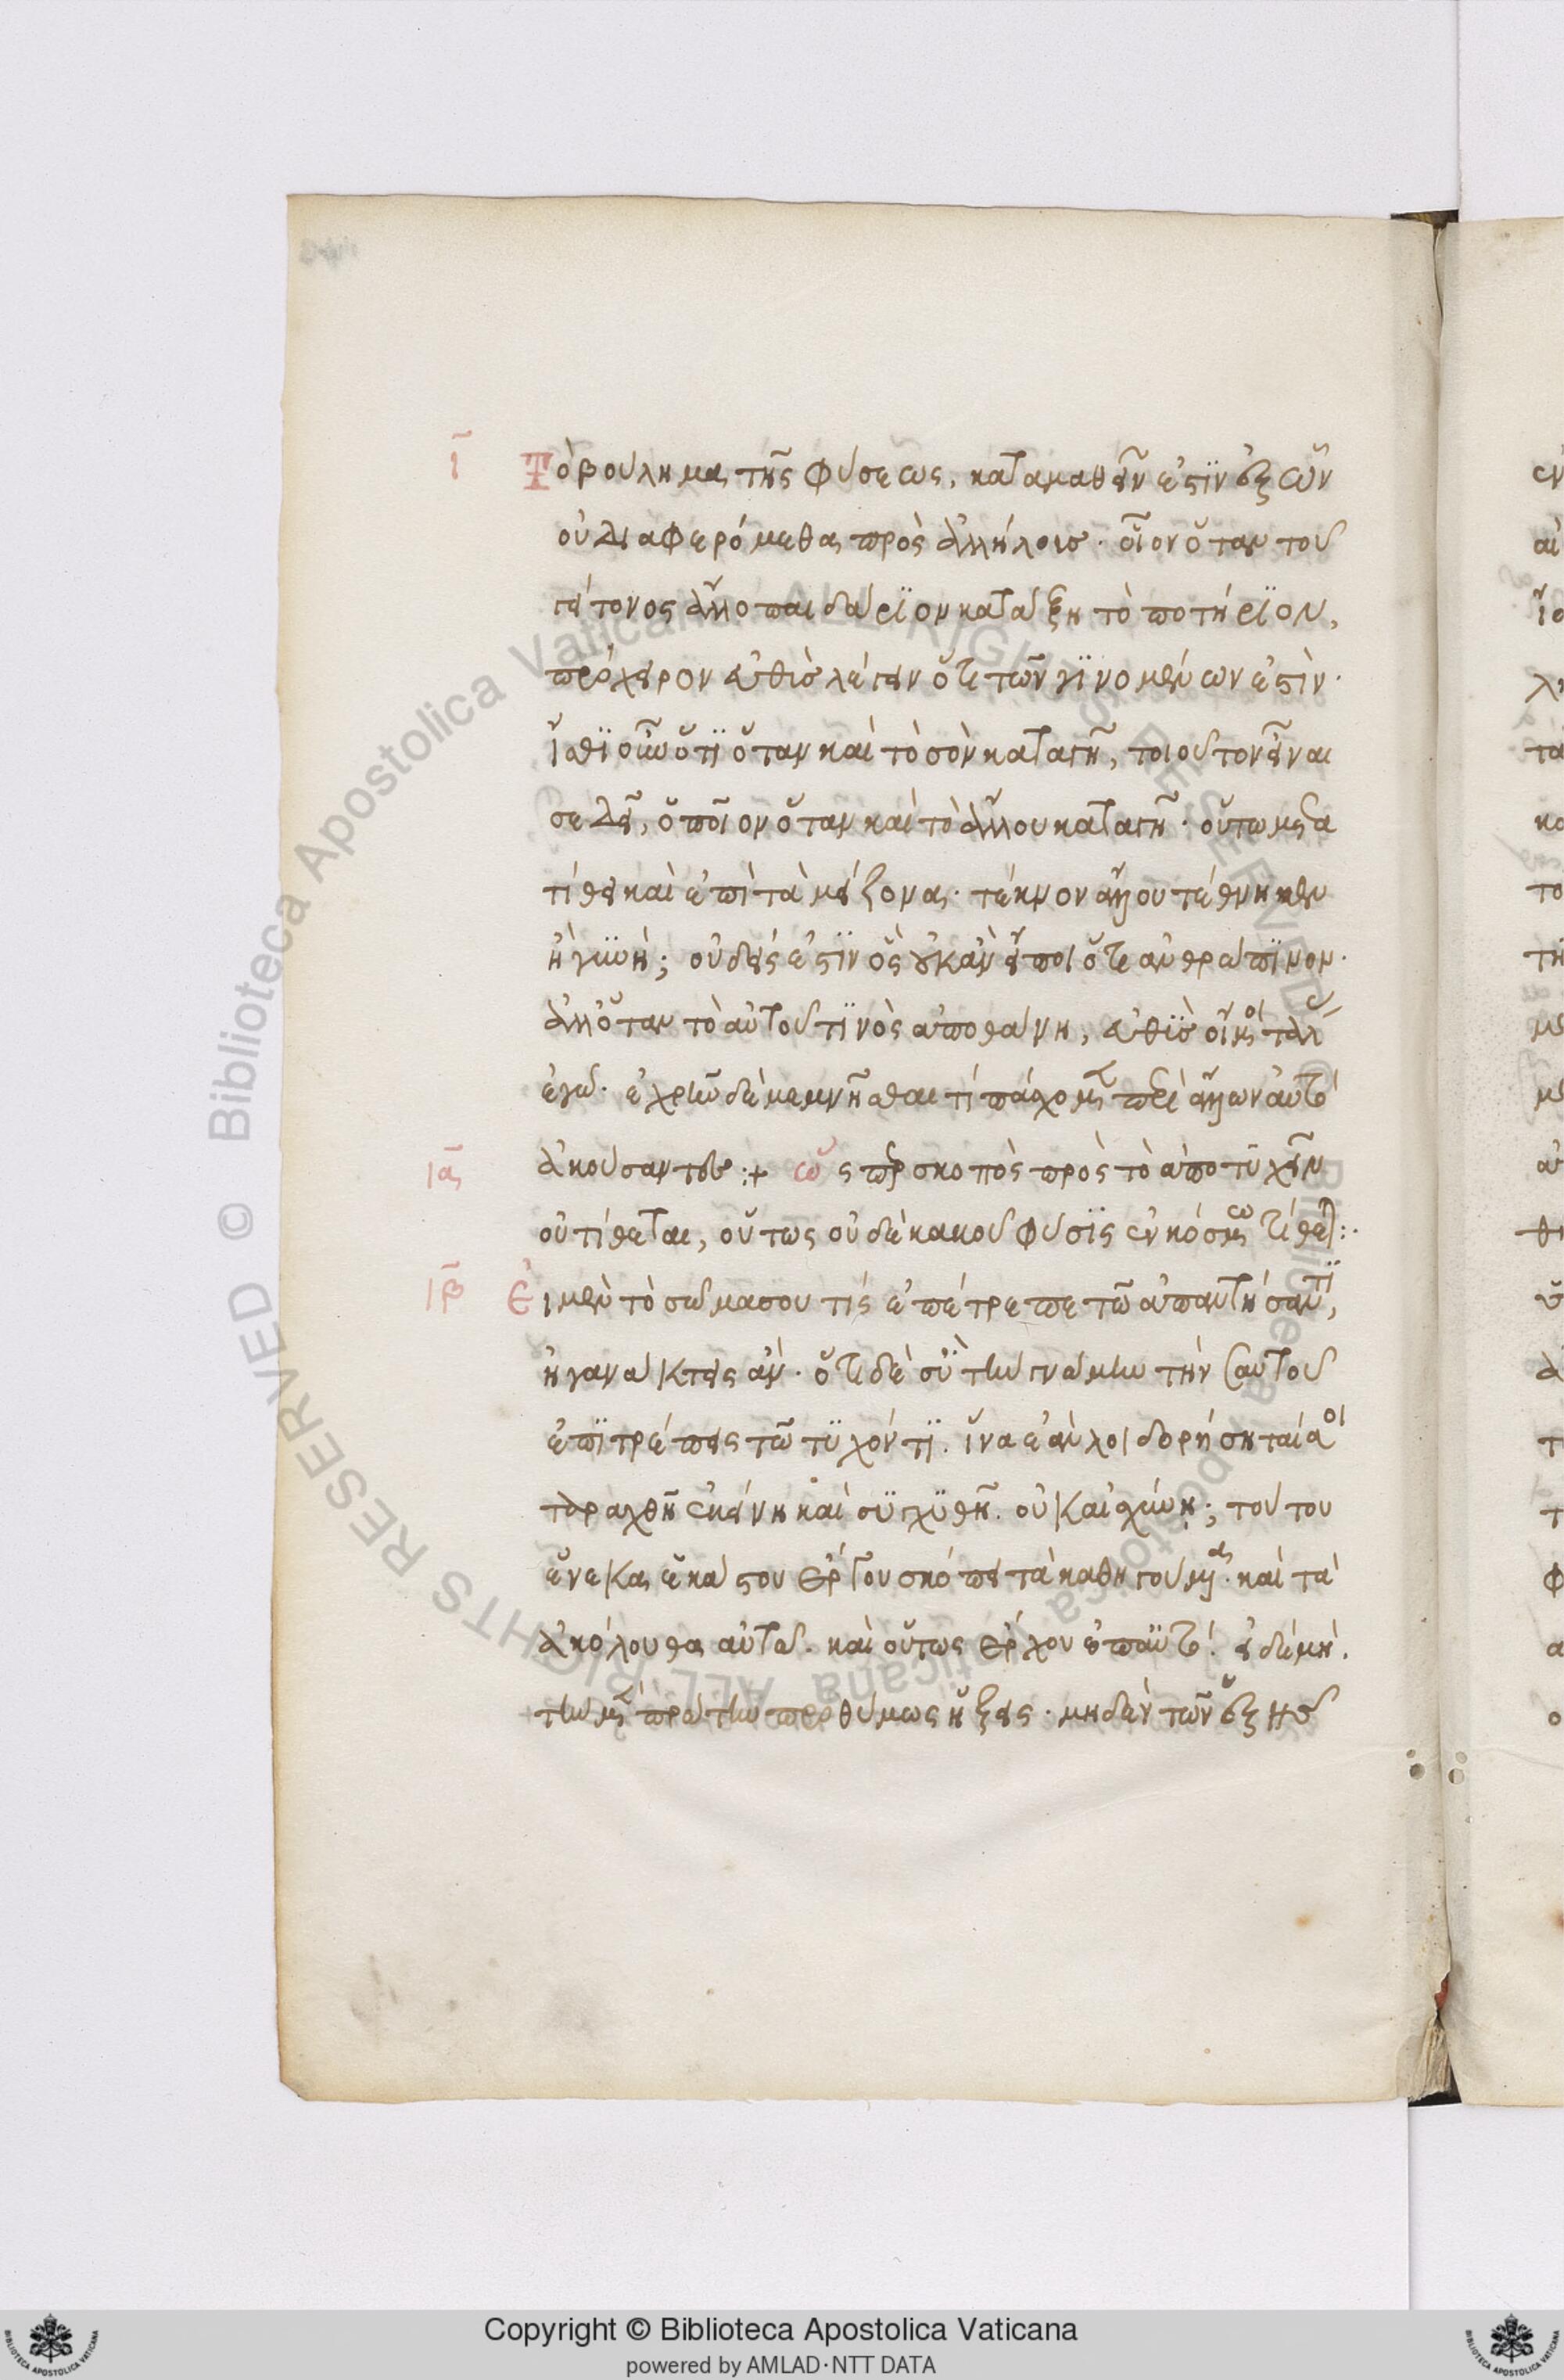 ι Τὸ βούλημα τῆς φύσεως, καταμαθεῖν ἐστὶν ἐξ ὧν
οὐ διαφερόμεθα πρὸς ἀλλήλους· οἷον ὅταν τοῦ
γείτονος ἄλλο παιδάριον κατάξῃ τὸ ποτήριον,
πρόχειρον εὐθὺς λέγειν ὅτι τῶν γινομένων ἐστὶν·
ἴσθι οὖν ὅτι ὅταν καὶ τὸ σὸν καταγῇ, τοιοῦτον εἶναι
σε δεῖ, ὁποῖον ὅταν καὶ τὸ ἄλλου καταγῇ· οὕτω μετα
τίθει καὶ ἐπὶ τὰ μείζονα· τέκνον ἄλλου τέθνηκεν
ἢ γυνή; οὐδείς ἐστὶν ὃς οὐκ ἂν εἴποι ὅτι ἀνθρώπινον·
ἀλλ' ὅταν τὸ αὐτοῦ τινὸς ἀποθάνῃ, εὐθὺς οἴμοι τάλας
ἐγώ· ἐχρῆν δὲ μεμνῆσθαι τί πάσχομεν περὶ ἄλλων αὐτὸ
ἀκούσαντες :+
ια ὥσπερ σκοπὸς πρὸς τὸ ἀποτυχεῖν
οὐ τίθεται, οὕτως οὐδὲ κακοῦ φύσις ἐν κόσμω τίθεται:·
ιβ Εἰ μὲν τὸ σῶμα σου τίς ἐπέτρεπε τῶ ἀπαντήσαντι,
ἠγανάκτεις ἄν· ὅτι δὲ σὺ τὴν γνώμην τὴν σαυτοῦ
ἐπιτρέπεις τῶ τυχόντι. ἵνα ἐὰν λοιδορήσηταί σοι
ταραχθῇ ἐκείνη καὶ συγχυθῇ. οὐκ αἰσχύνῃ; τούτου
ἕνεκα ἑκάστου ἔργου σκόπει τὰ καθηγούμενα· καὶ τὰ
ἀκόλουθα αὐτοῦ. καὶ οὕτως ἔρχου ἐπ' αὐτό. εἰ δὲ μή.
τὴν μὲν πρώτην προθύμως ἥξεις· μηδὲν τῶν ἑξῆς
Copyright © Biblioteca Apostolica Vaticana
powered by AMLAD·NTT DATA